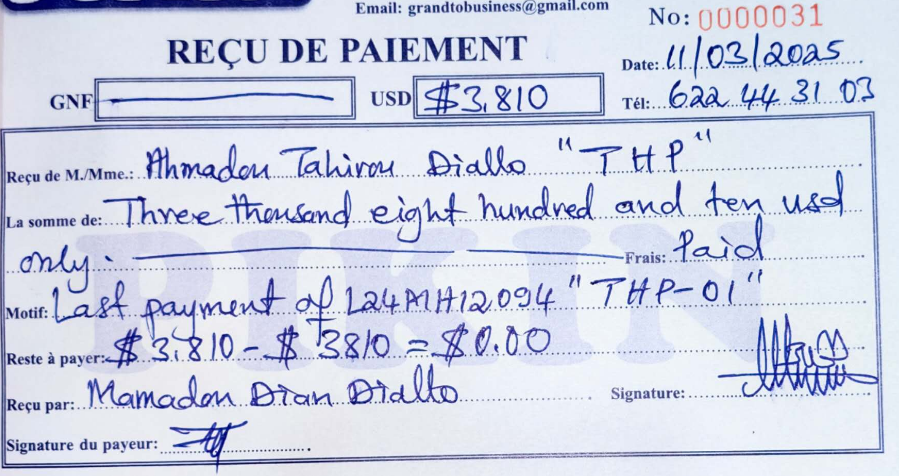 Email: grandtobusiness@gmail.com
No: 0000031
REÇU DE PAIEMENT
Date: 11/03/2025
GNF
USD $3,810
Tél: 622 44 31 03
Reçu de M./Mme.: Ahmadou Tahirou Diallo "THP"
La somme de: Three thousand eight hundred and ten usd
only. Frais: Paid
PIKIN
Motif: Last payment of L24MH12094 "THP-01"
Reste à payer: $3,810 - $3810 = $0.00
Reçu par: Mamadou Dian Diallo Signature:
Signature du payeur: